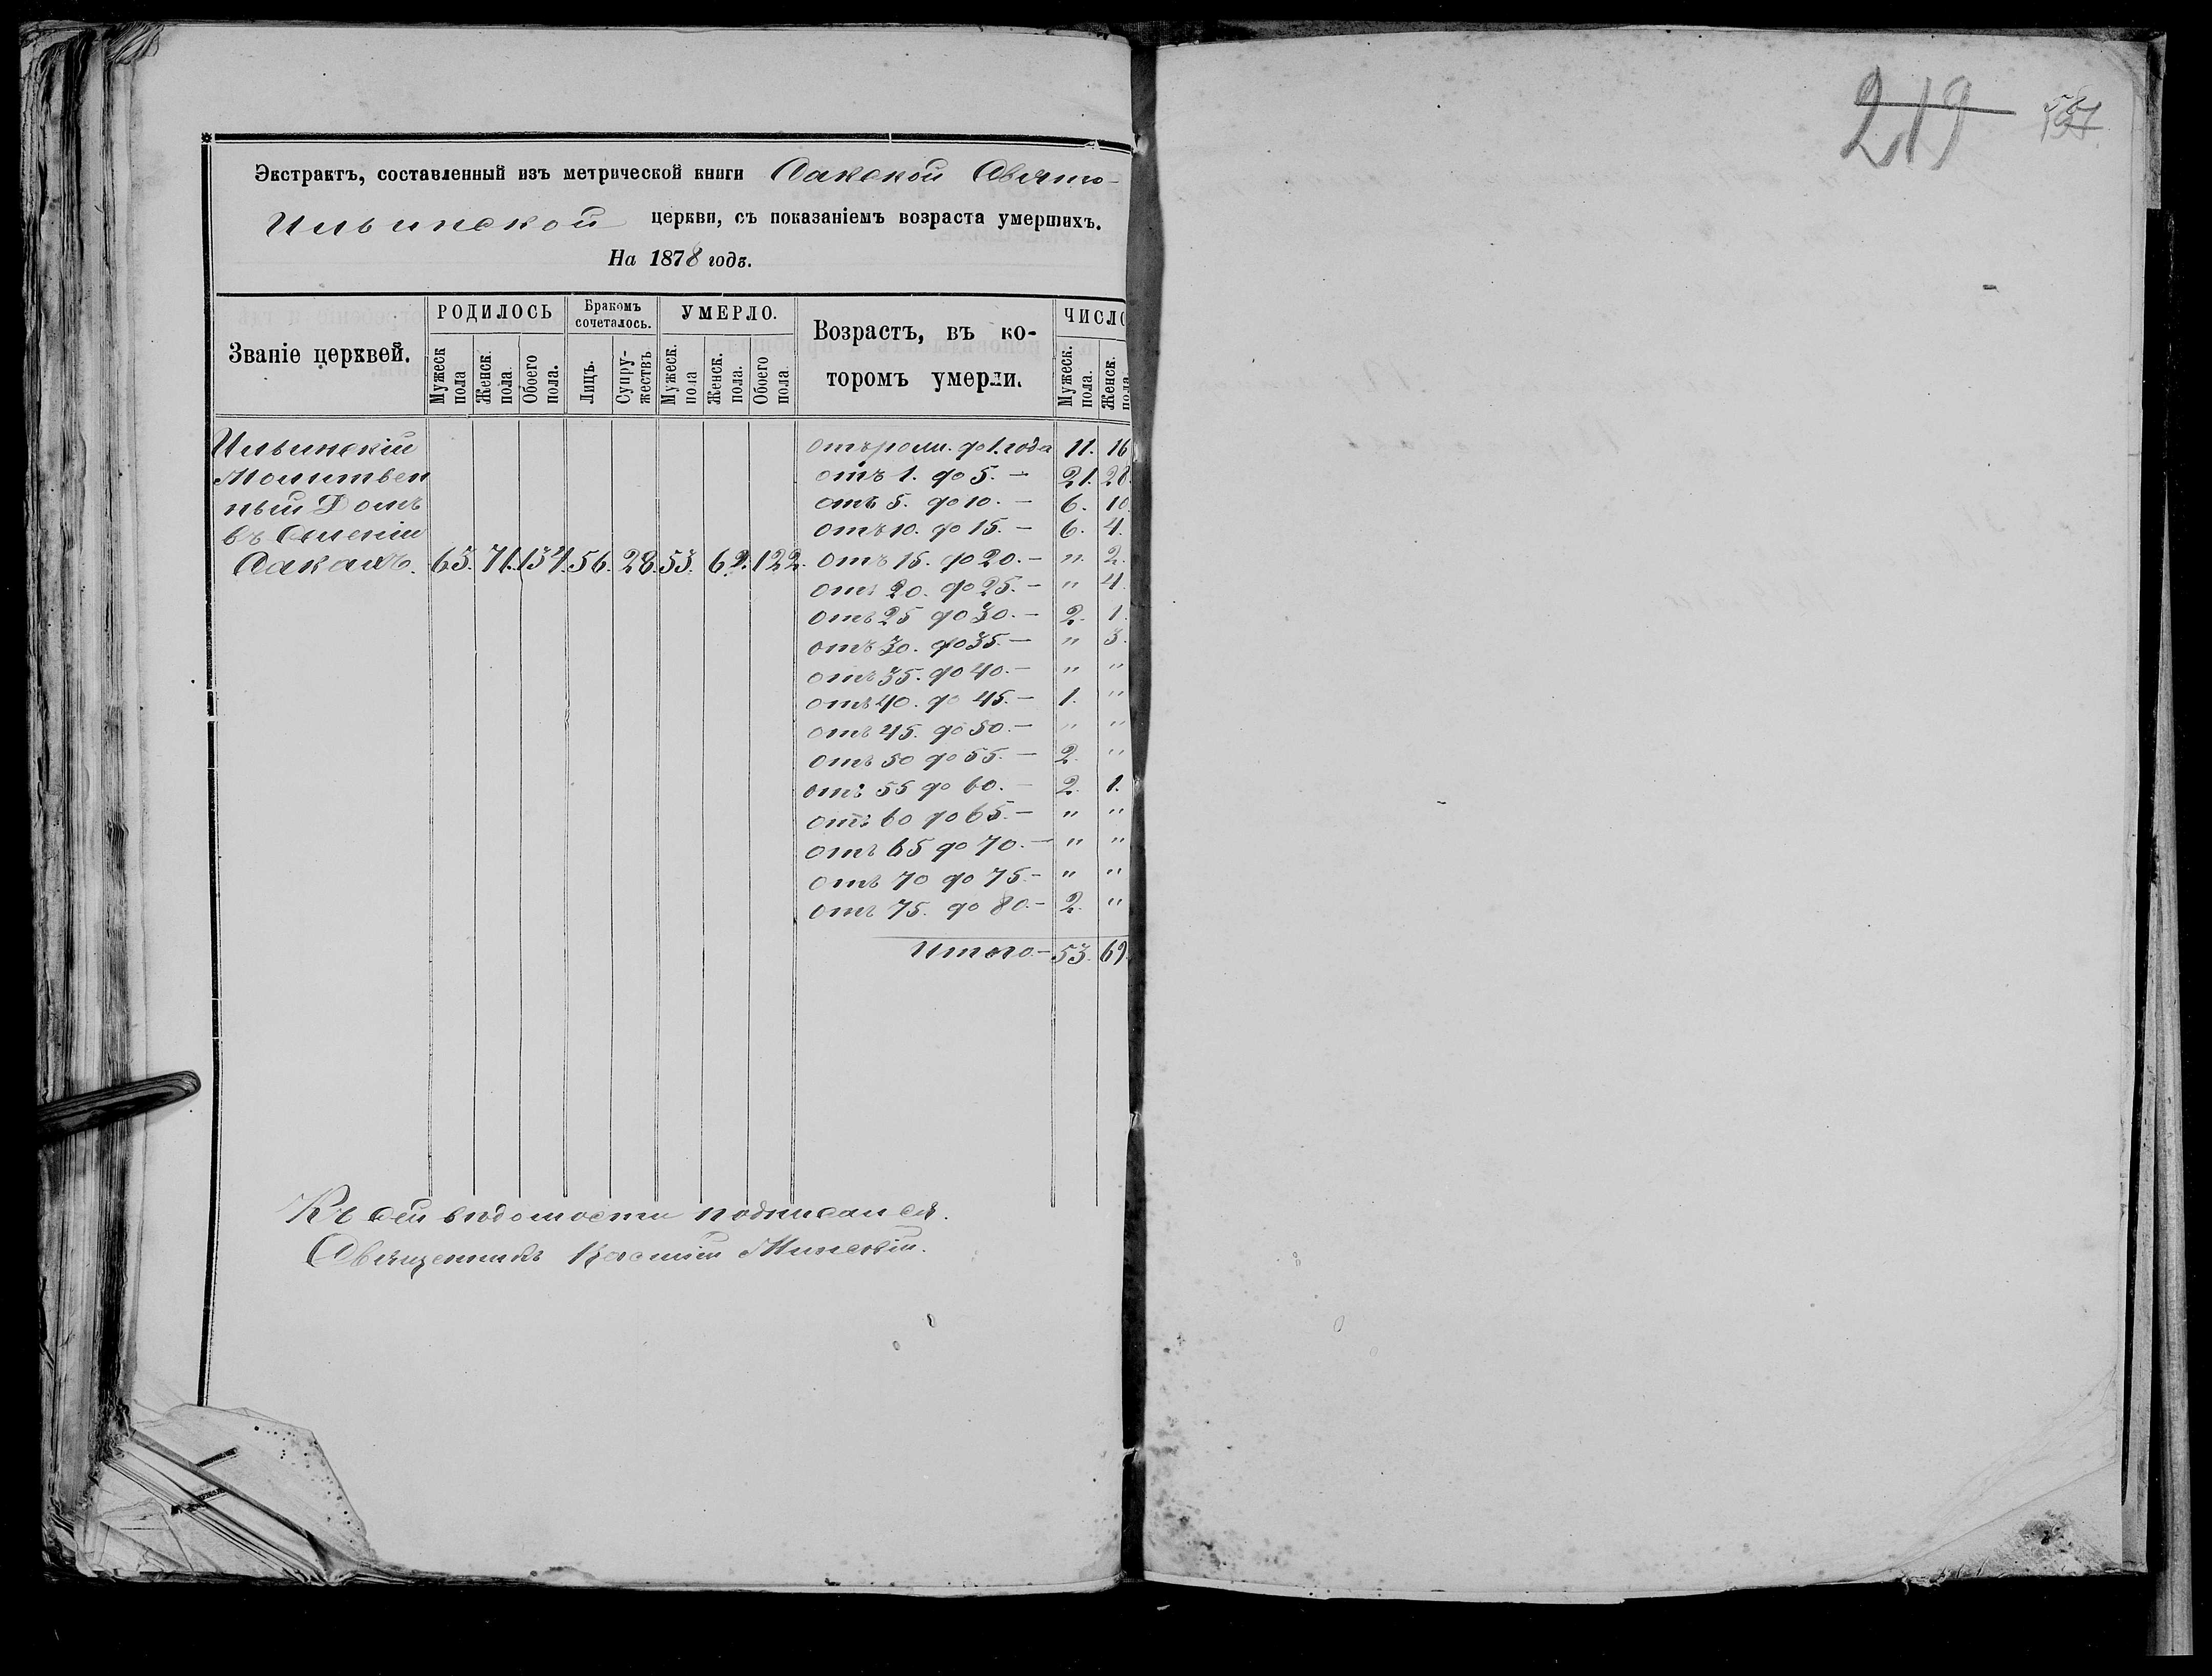 219 58
Экстрактъ, составленный изъ метрической книги Сакской Свято-
Ильинской церкви, съ показаніемъ возраста умершихъ.
На 1878 годъ.
Званіе церквей. РОДИЛОСЬ Бракомъ сочеталось. УМЕРЛО. Возрастъ, въ ко-торомъ умерли. ЧИСЛО
Мужеск пола Женск. пола. Обоего пола. Лицъ. Супру-жествъ. Мужеск. пола Женск. пола. Обоего пола. Мужеск. пола. Женск. пола
Ильинскій отъ рожд. до 1. года 11. 16
Молитвен отъ 1. до 5. — 21. 28.
ный Домъ отъ 5. до 10. — 6. 10.
въ Селеніи отъ 10. до 15. — 6. 4.
Сакахъ. 63. 71. 134. 56. 28. 53. 69. 122. отъ 15. до 20. — „. 2.
отъ 20. до 25. — „ 4.
отъ 25 до 30. — 2. 1.
отъ 30. до 35. — „ 3.
отъ 35. до 40. — „ „
отъ 40. до 45. — 1. „
отъ 45. до 50. — „ „
отъ 50 до 55. — 2. „
отъ 55 до 60. — 2. 1.
отъ 60 до 65. — „ „
отъ 65 до 70. — „ „
отъ 70 до 75. — „ „
отъ 75. до 80. — 2. „
Итого. — 53. 69.
Къ сей вѣдомости подписался.
Священникъ Минскій.